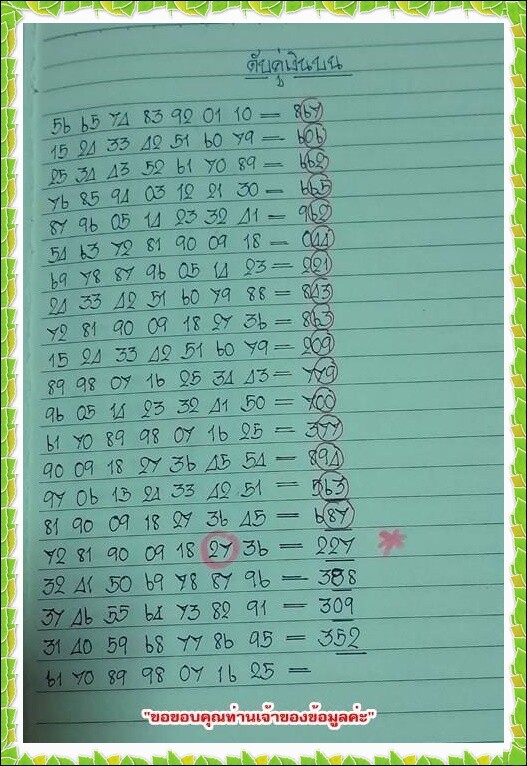 ดับคู่เงินบน
56 65 74 83 92 01 10 = 867
15 24 33 42 51 60 79 = 606
25 34 43 52 61 70 89 = 662
76 85 94 03 12 21 30 = 665
87 96 05 14 23 32 41 = 962
54 63 72 81 90 09 18 = 044
69 78 87 96 05 14 23 = 221
24 33 42 51 60 79 88 = 843
72 81 90 09 18 27 36 = 863
15 24 33 42 51 60 79 = 209
89 98 07 16 25 34 43 = 779
96 05 14 23 32 41 50 = 700
61 70 89 98 07 16 25 = 377
90 09 18 27 36 45 54 = 894
97 06 15 24 33 42 51 = 563
81 90 09 18 27 36 45 = 687
72 81 90 09 18 27 36 = 227 *
32 41 50 69 78 87 96 = 388
37 46 55 64 73 82 91 = 309
31 40 59 68 77 86 95 = 352
61 70 89 98 07 16 25 =
"ขอขอบคุณท่านเจ้าของข้อมูลค่ะ"